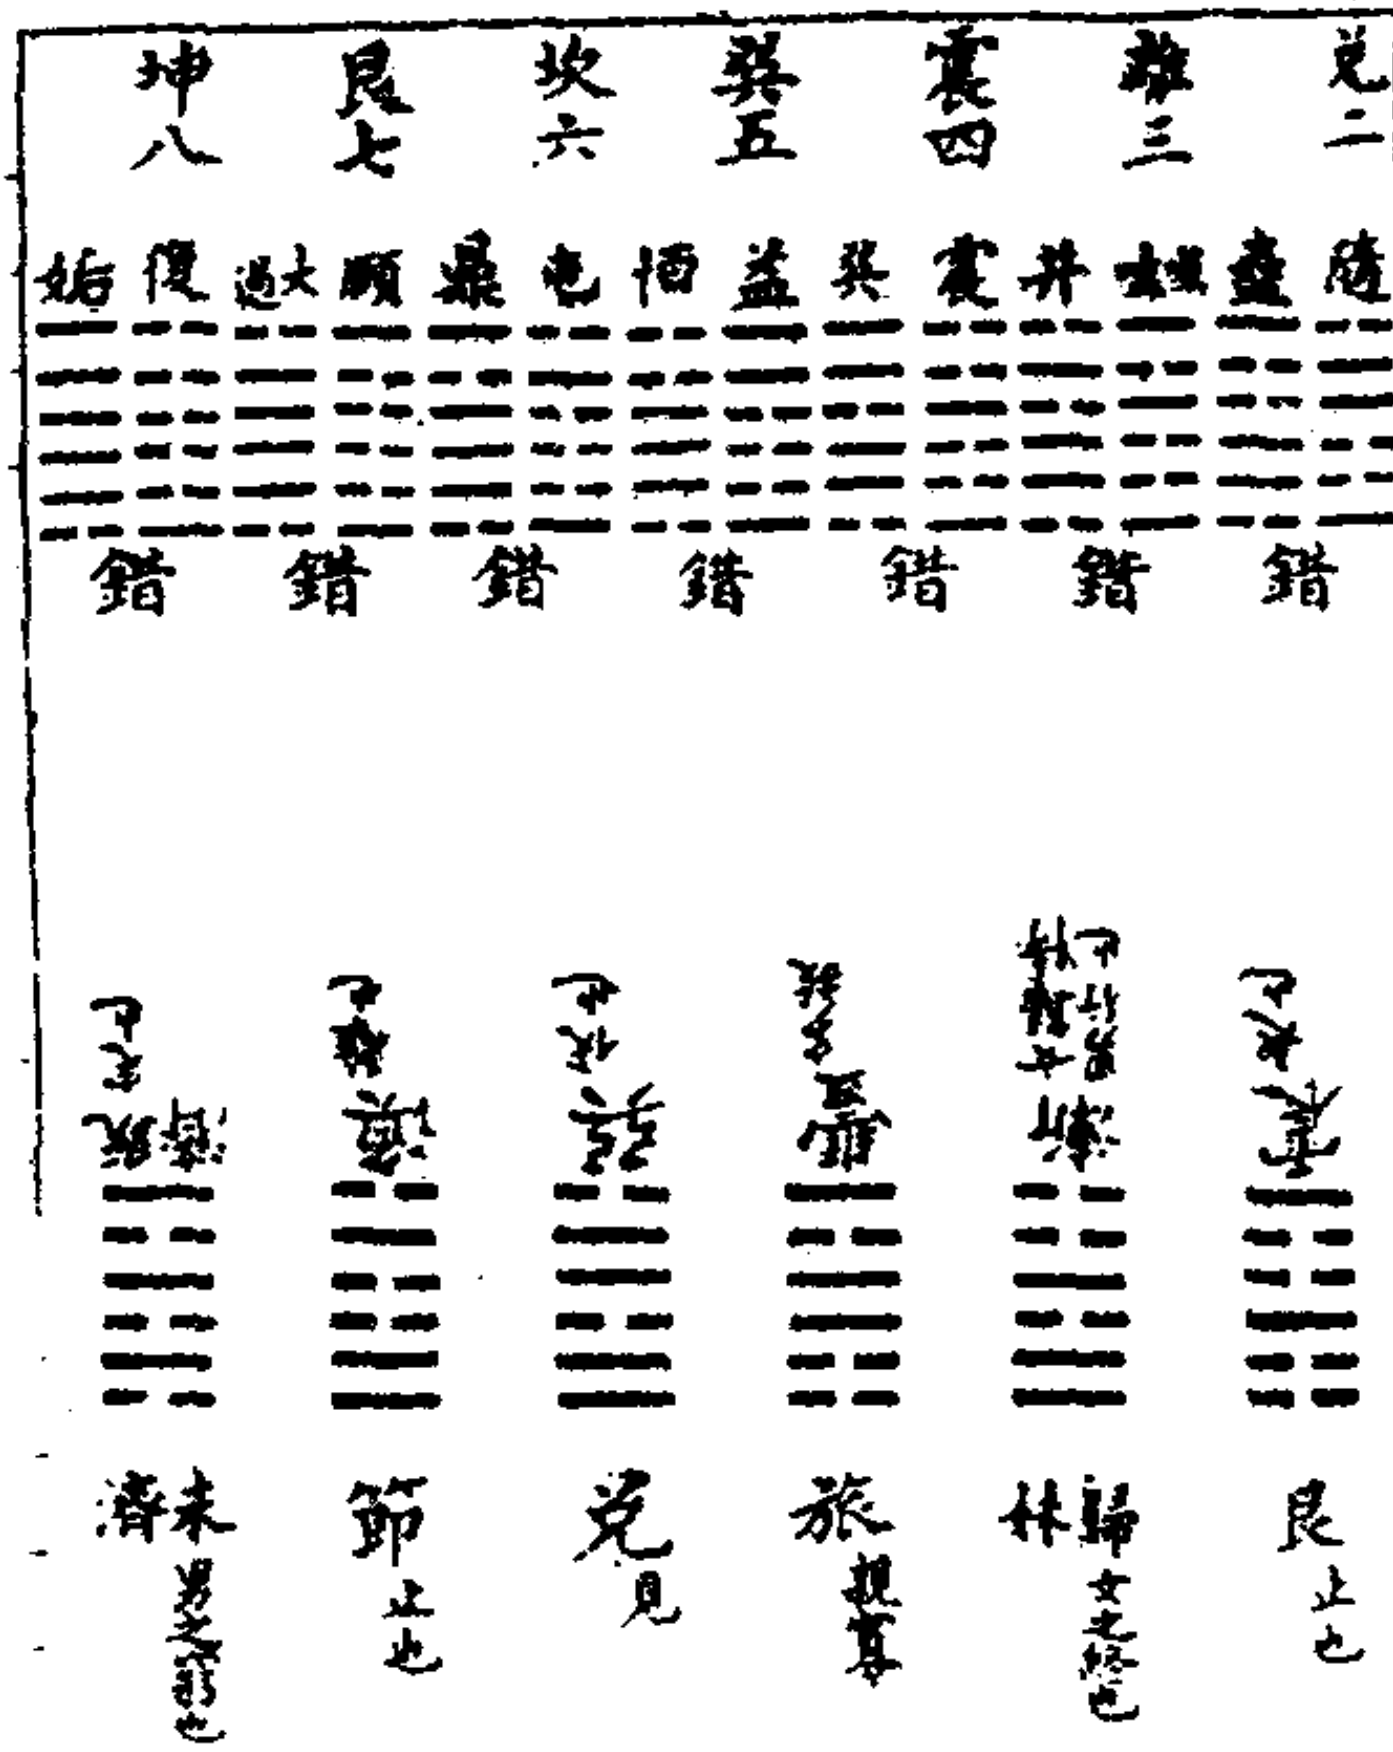 兌二
離三
震四
巽五
坎六
艮七
坤八
隨
蠱
噬嗑
井
震
巽
益
恒
屯
鼎
頤
大過
復
姤
錯
錯
錯
錯
錯
錯
錯
震 起也
漸 女歸待男行也
豐 多故
巽 伏也
渙 離也
既濟 定也
艮 止也
歸妹 女之終也
旅 親寡
兌 見
節 止也
未濟 男之窮也